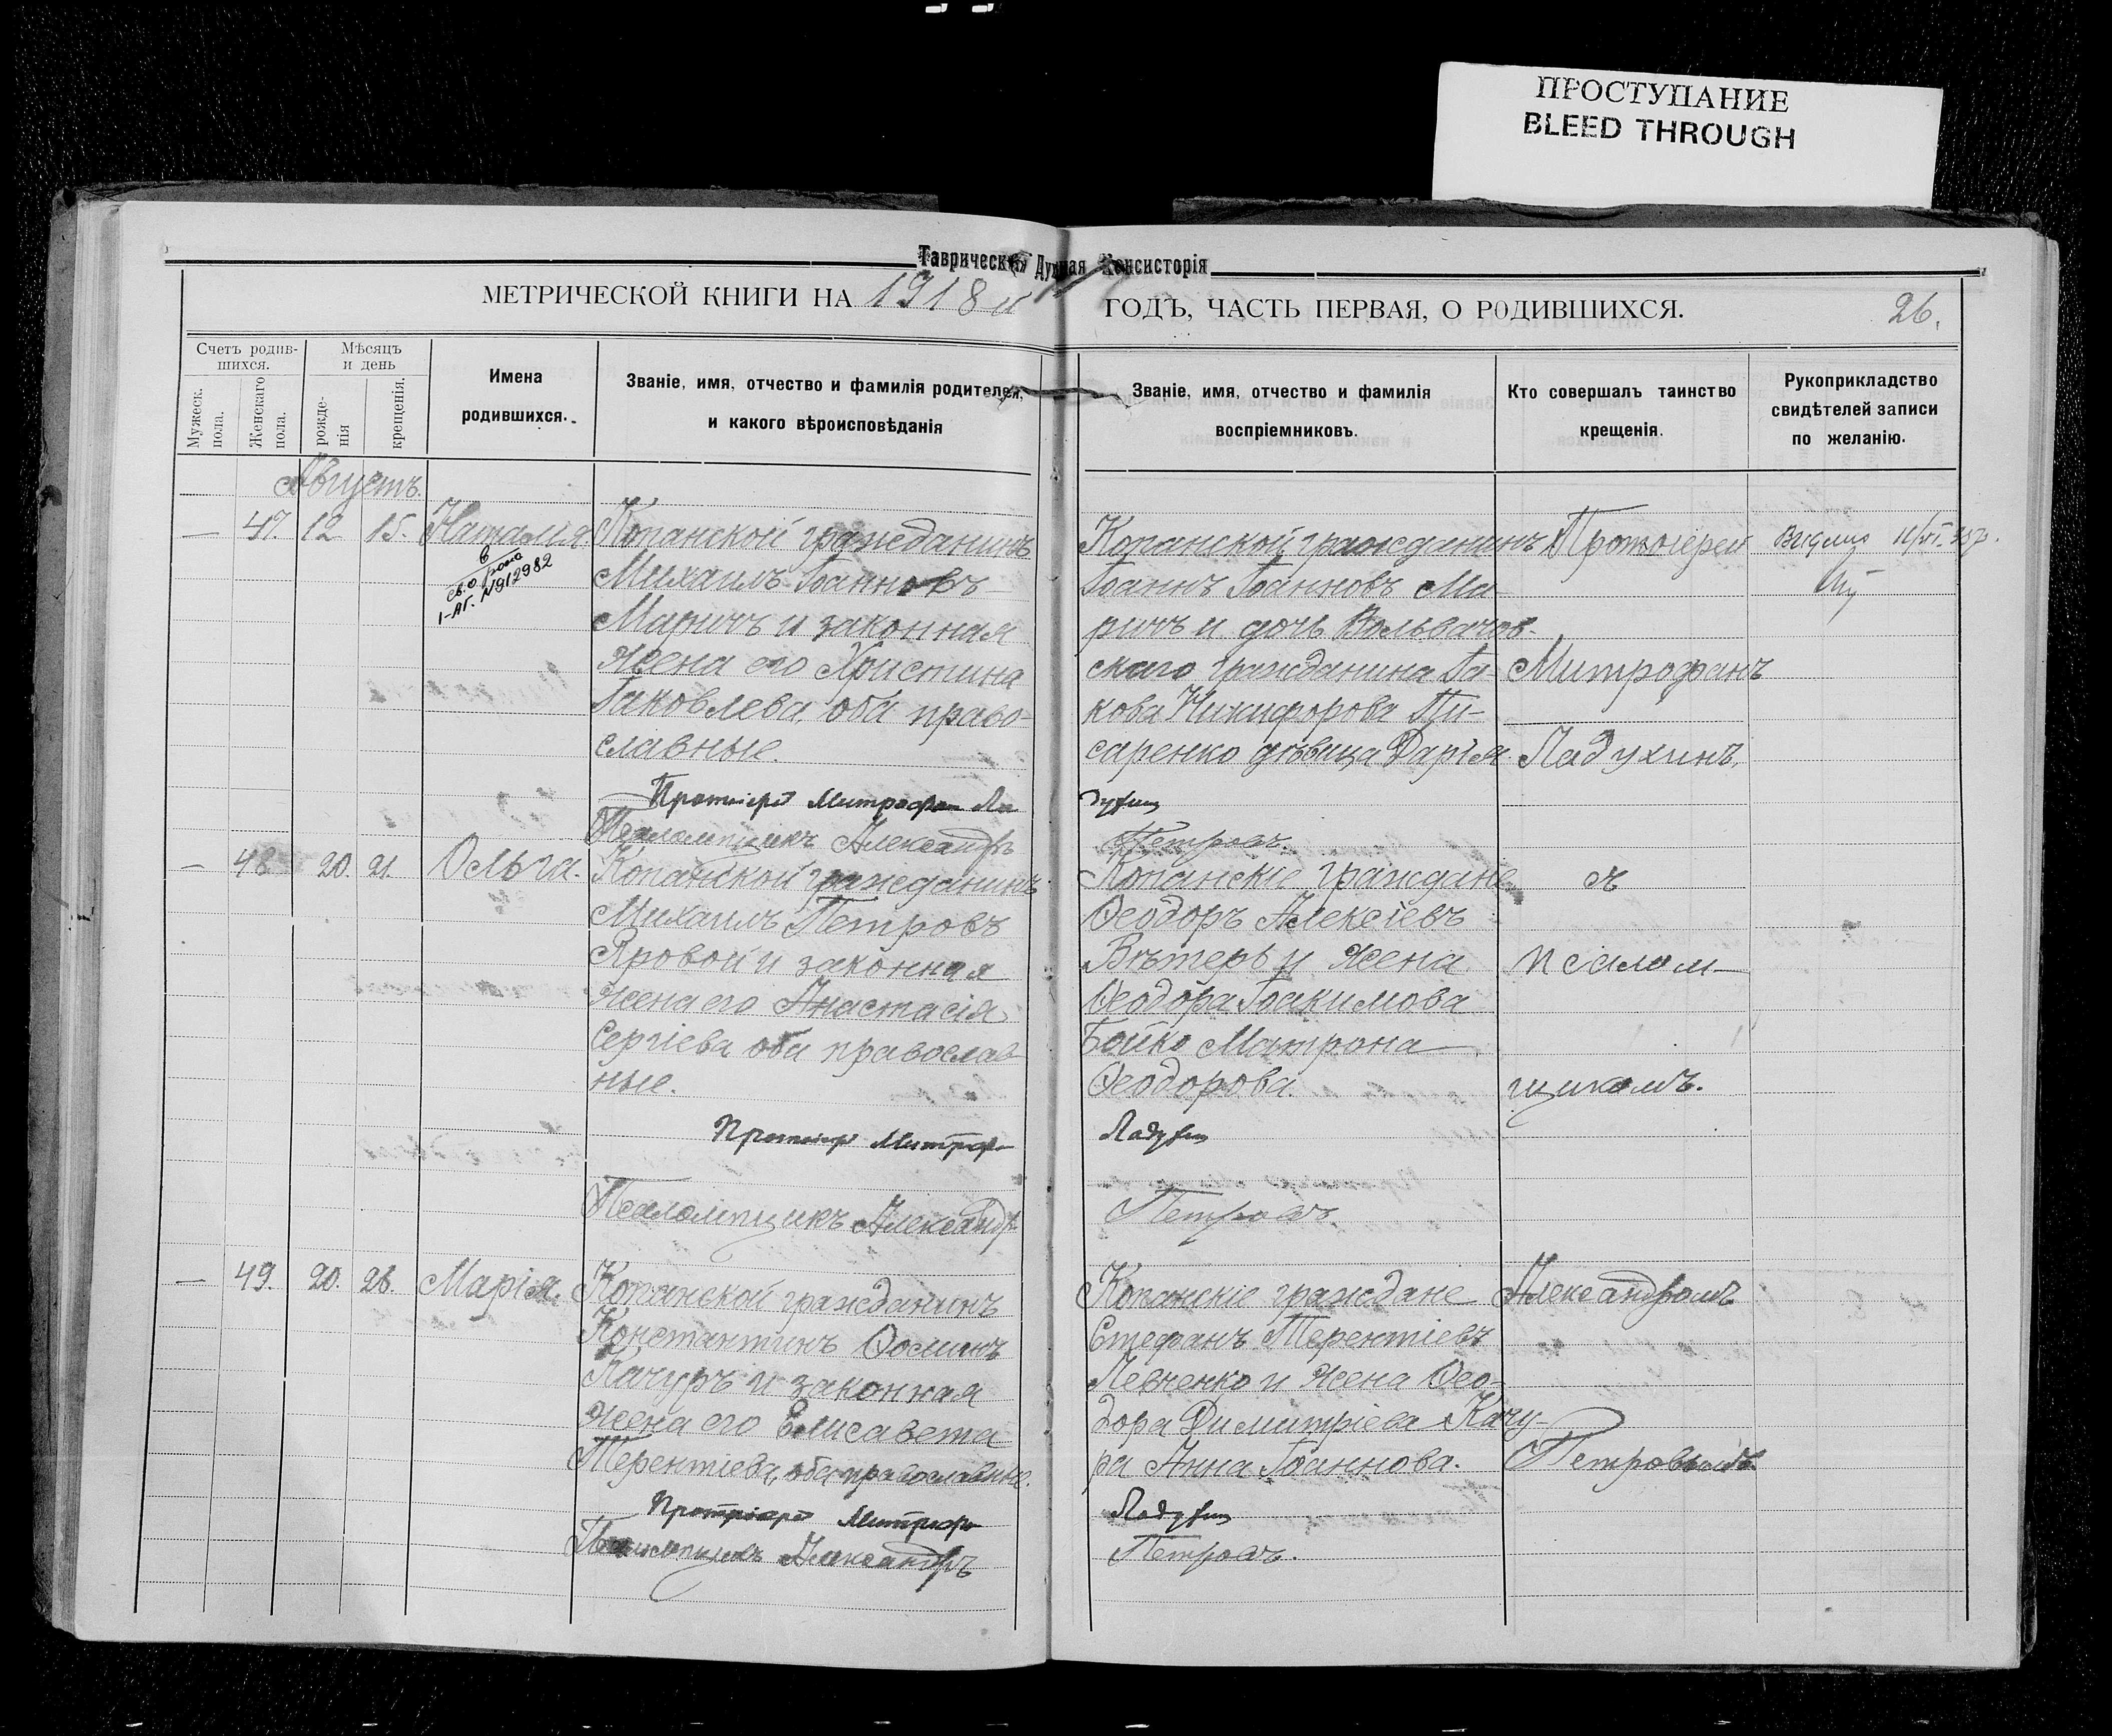 ПРОСТУПАНИЕ
BLEED THROUGH
Таврическая Духовная Консисторія
МЕТРИЧЕСКОЙ КНИГИ НА 1918 й ГОДЪ, ЧАСТЬ ПЕРВАЯ, О РОДИВШИХСЯ. 26.
Счетъ родив-
шихся.
Мужеск. пола.
Женскаго пола.
Мѣсяцъ
и день
рожде-
нія
крещенія.
Имена
родившихся.
Званіе, имя, отчество и фамилія родителей,
и какого вѣроисповѣданія
Званіе, имя, отчество и фамилія
воспріемниковъ.
Кто совершалъ таинство
крещенія.
Рукоприкладство
свидѣтелей записи
по желанію.
Августъ.
— 47. 12 15. Наталія
св. о рожд
1-АГ. №912982
Копанской гражданинъ
Михаилъ Іоанновъ
Маричъ и законная
жена его Христина
Іаковлева, оба право-
славные.
Протоіерей Митрофан Ла
Псаломщикъ Александръ
Копанской гражданинъ
Іоаннъ Іоанновъ Ма-
ричъ и дочь Вольвачов-
скаго гражданина Іа-
кова Никифорова Пи-
саренко дѣвица Дарія.
духин
Петровъ.
Протоіерей
Митрофанъ
Ладухинъ,
— 48 20. 21. Ольга.
Копанской гражданинъ
Михаилъ Петровъ
Яровой и законная
жена его Анастасія
Сергіева оба православ
ные.
Протоіерей Митроф
Псаломщикъ Александр
Копанскіе граждане
Ѳеодоръ Алексіевъ
Вѣтеръ и жена
Ѳеодора Іоакимова
Бойко Матрона
Ѳеодорова.
Ладухин
Петровъ
съ
псалом-
щикомъ.
— 49. 20. 26. Марія.
Копанской гражданинъ
Константинъ Ѳоминъ
Качуръ и законная
жена его Елисавета
Терентіева, оба православные.
Протоіерей Митроф
Псаломщикъ Александръ
Копанскіе граждане
Стефанъ Терентіевъ
Левченко и жена Ѳео-
дора Димитріева Качу-
ра Анна Іоаннова.
Ладухин
Петровъ.
Александромъ
Петровымъ.